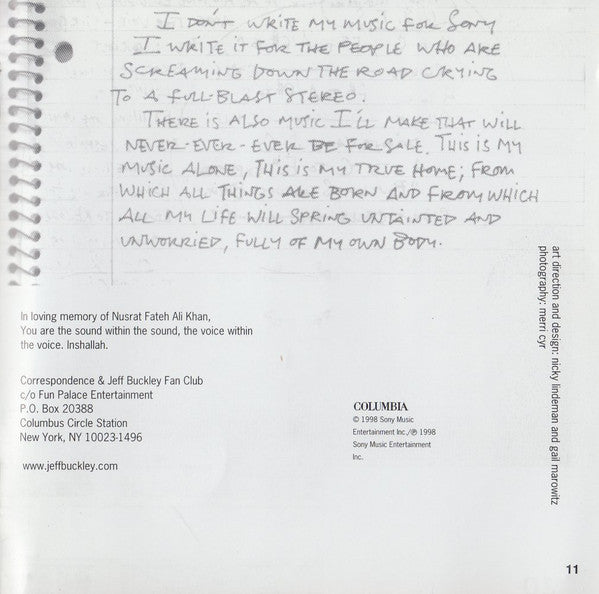 I DON'T WRITE MY MUSIC FOR SONY
I WRITE IT FOR THE PEOPLE WHO ARE
SCREAMING DOWN THE ROAD CRYING
TO A FULL-BLAST STEREO.
THERE IS ALSO MUSIC I'LL MAKE THAT WILL
NEVER-EVER-EVER BE FOR SALE. THIS IS MY
MUSIC ALONE, THIS IS MY TRUE HOME; FROM
WHICH ALL THINGS ARE BORN AND FROM WHICH
ALL MY LIFE WILL SPRING UNTAINTED AND
UNWORRIED, FULLY OF MY OWN BODY.
In loving memory of Nusrat Fateh Ali Khan,
You are the sound within the sound, the voice within
the voice. Inshallah.
Correspondence & Jeff Buckley Fan Club
c/o Fun Palace Entertainment
P.O. Box 20388
Columbus Circle Station
New York, NY 10023-1496
www.jeffbuckley.com
COLUMBIA
© 1998 Sony Music
Entertainment Inc./℗ 1998
Sony Music Entertainment
Inc.
art direction and design: nicky lindeman and gail marowitz
photography: merri cyr
11